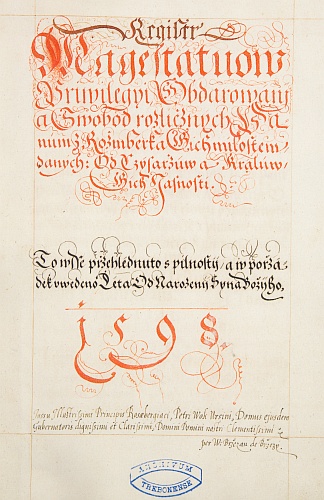 Registr
Magestatuow
Priwilegyi Obdarowanj
a Swobod rozličnych Pa
nuom z Rožmberka Gich milostem
danych: Od Cysařzuw a Kraluw
Gich Jasnosti.
To wsse přzehlednuto s pilnosty, a w porža
dek vwedeno Leta Od Narozeny Syna Božyho,
1598.
Jussu Illustrissimi Principis Rosebergiaci, Petri Wok Ursini, Domus eiusdem
Gubernatoris dignissimi et Clarissimi, Domini Domini nostri Clementissimi
per W: Březan de Březy.
ARCHIVUM
TREBONENSE